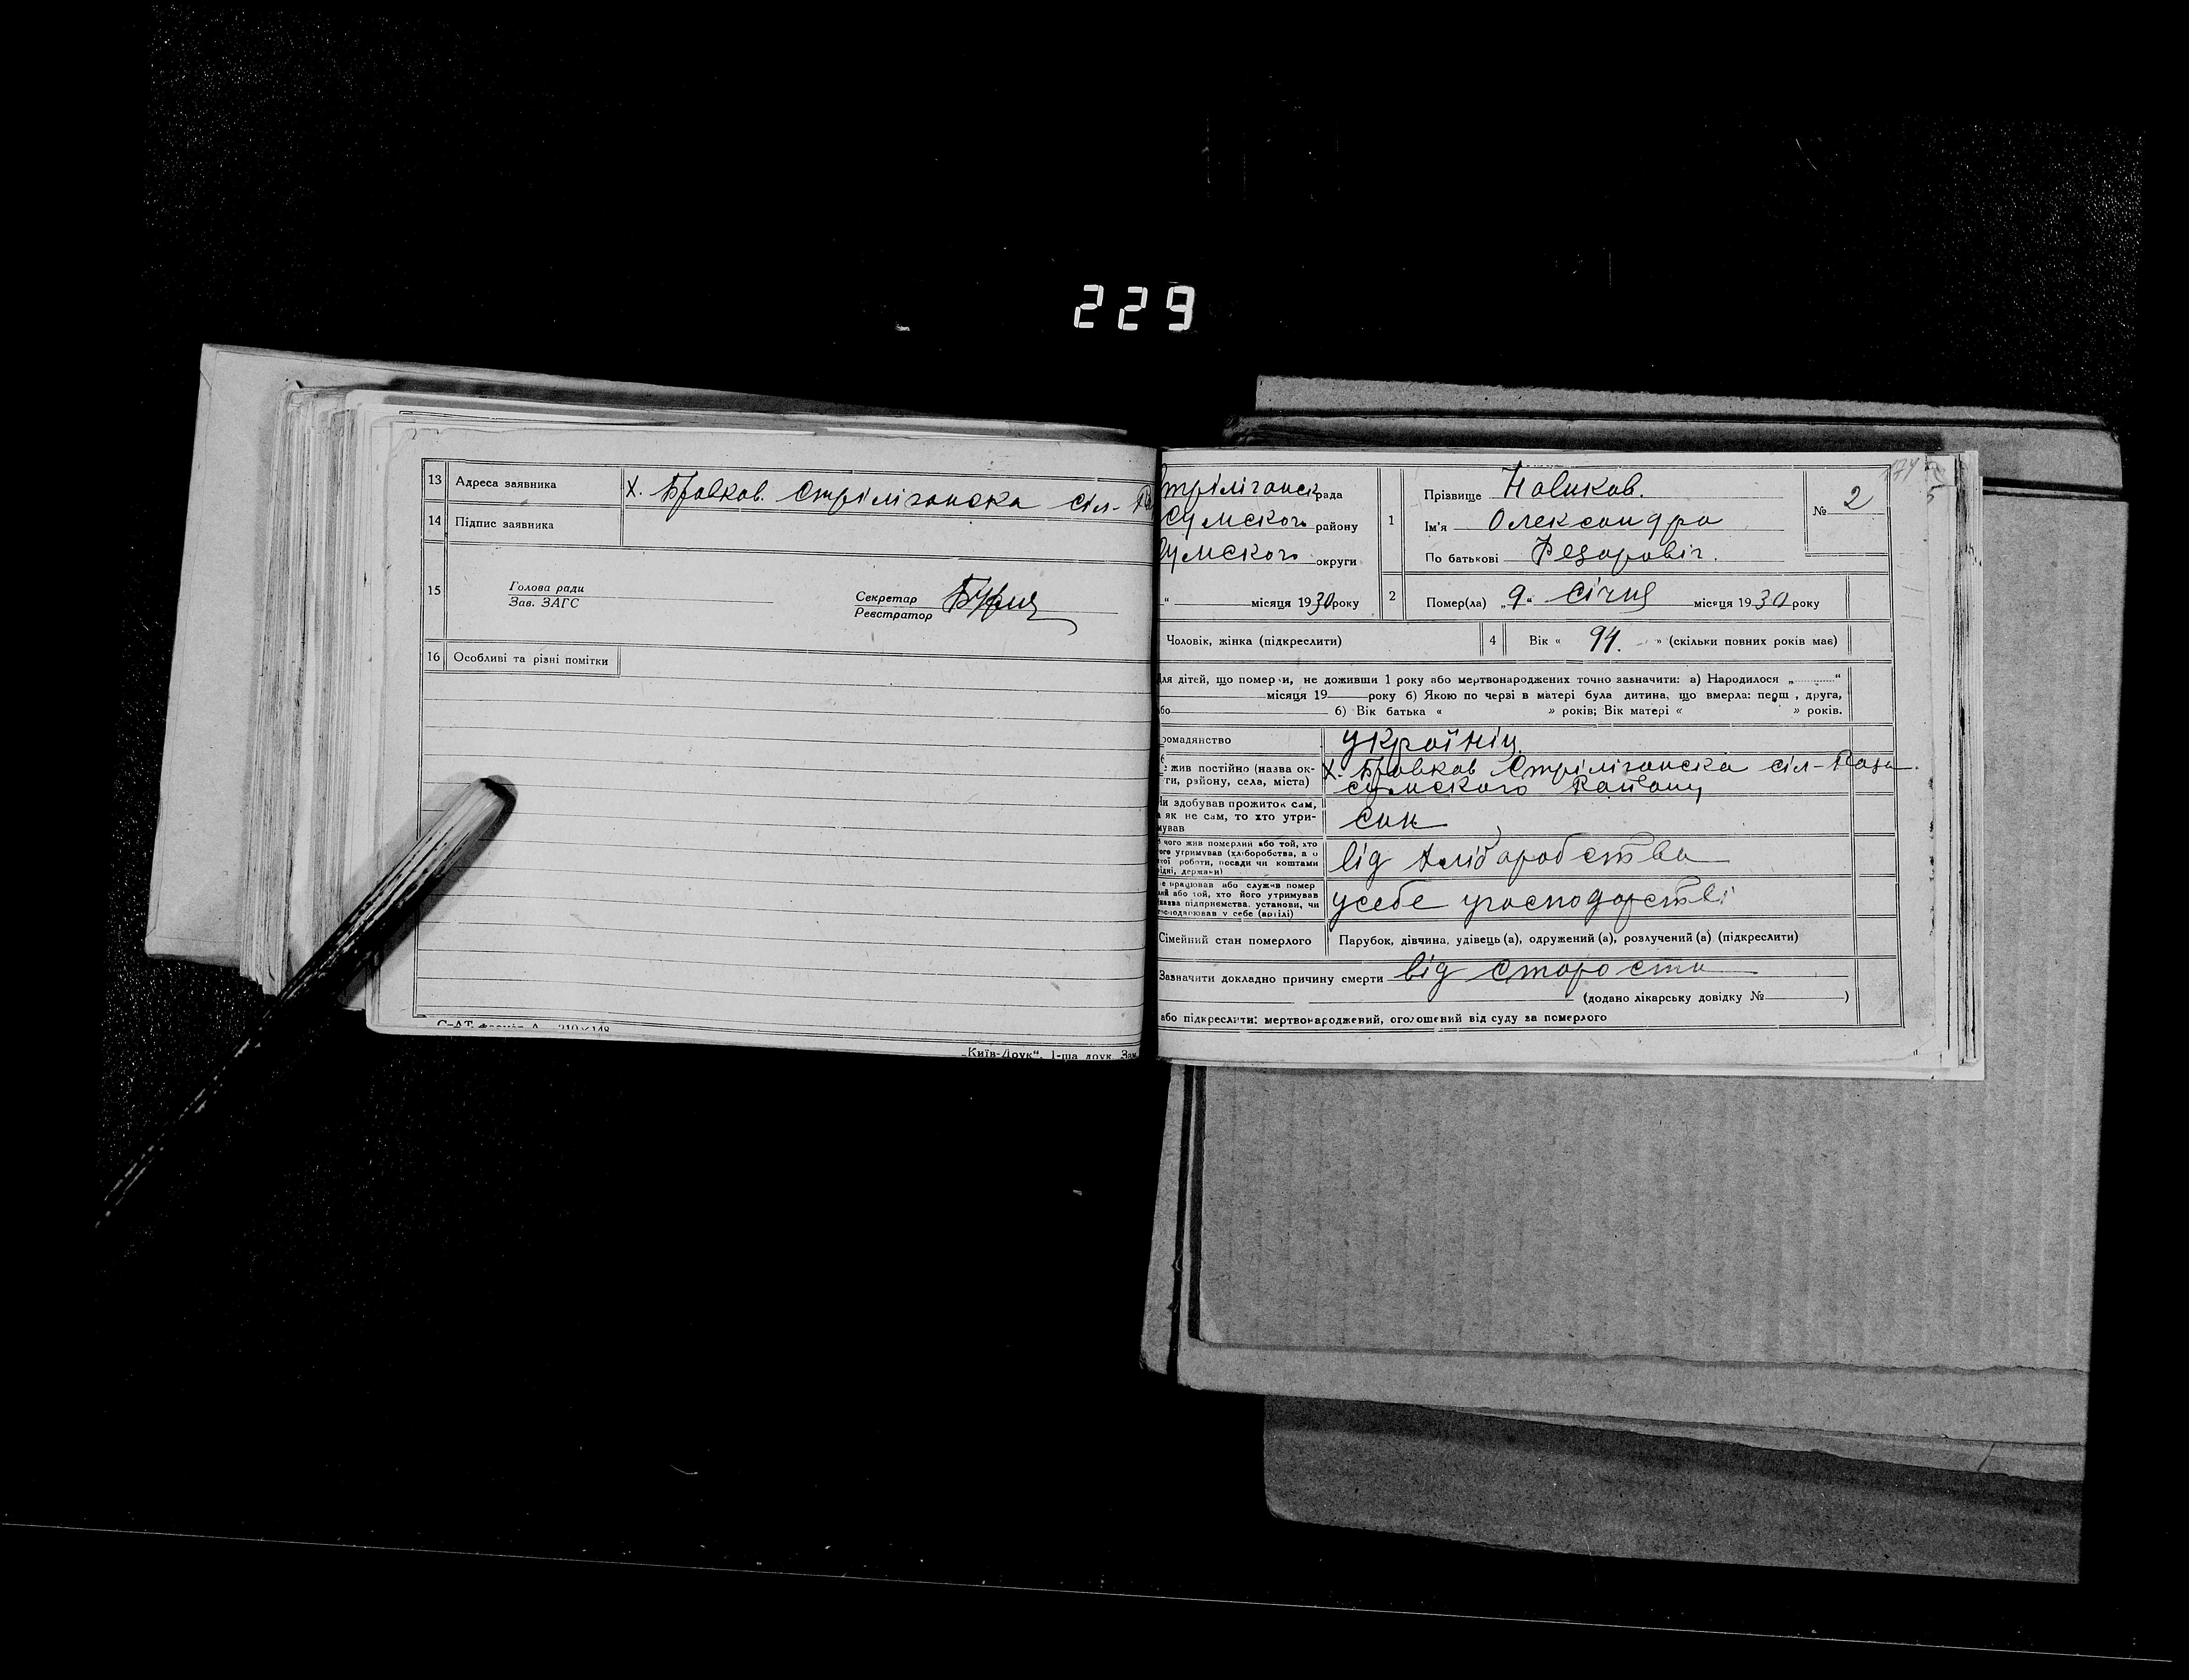 229
13 Адреса заявника х. Бровков. Стрілігонска сіл-
14 Підпис заявника
15 Голова ради
Зав. ЗАГС
Секретар
Реєстратор
16 Особливі та різні помітки
„Київ-Друк“. 1-ша друк. Зам.
трілігонск рада
Сумского району
умского округи
“ місяця 1930 року
1 Прізвище Новиков.
Ім'я Олександра
По батькові Федоровіч.
№ 2
2 Помер(ла) „9“ Січня місяця 1930 року
Чоловік, жінка (підкреслити)
4 Вік « 94. » (скільки повних років має)
Для дітей, що померли, не доживши 1 року або мертвонароджених точно зазначити: а) Народилося „ “
місяця 19 року б) Якою по черзі в матері була дитина, що вмерла: перш , друга,
бо б) Вік батька « » років; Вік матері « » років.
ромадянство україніц
е жив постійно (назва ок-
ги, району, села, міста) х. Бровков Стрілігонска сіл-Рада.
сумского Району
Чи здобував прожиток сам,
а як не сам, то хто утри-
мував син
з чого жив померлий або той, хто
його утримував (хліборобства, а о
якої роботи, посади чи коштами
рідні, держави) від хліборобства
е працював або служив помер
лий або той, хто його утримував
(назва підприємства, установи, чи
господарював у себе (артілі) усебе угосподарстві
Сімейний стан померлого Парубок, дівчина, удівець (а), одружений (а), розлучений (а) (підкреслити)
Зазначити докладно причину смерти від Старости
(додано лікарську довідку № )
або підкреслити: мертвонароджений, оголошений від суду за померлого